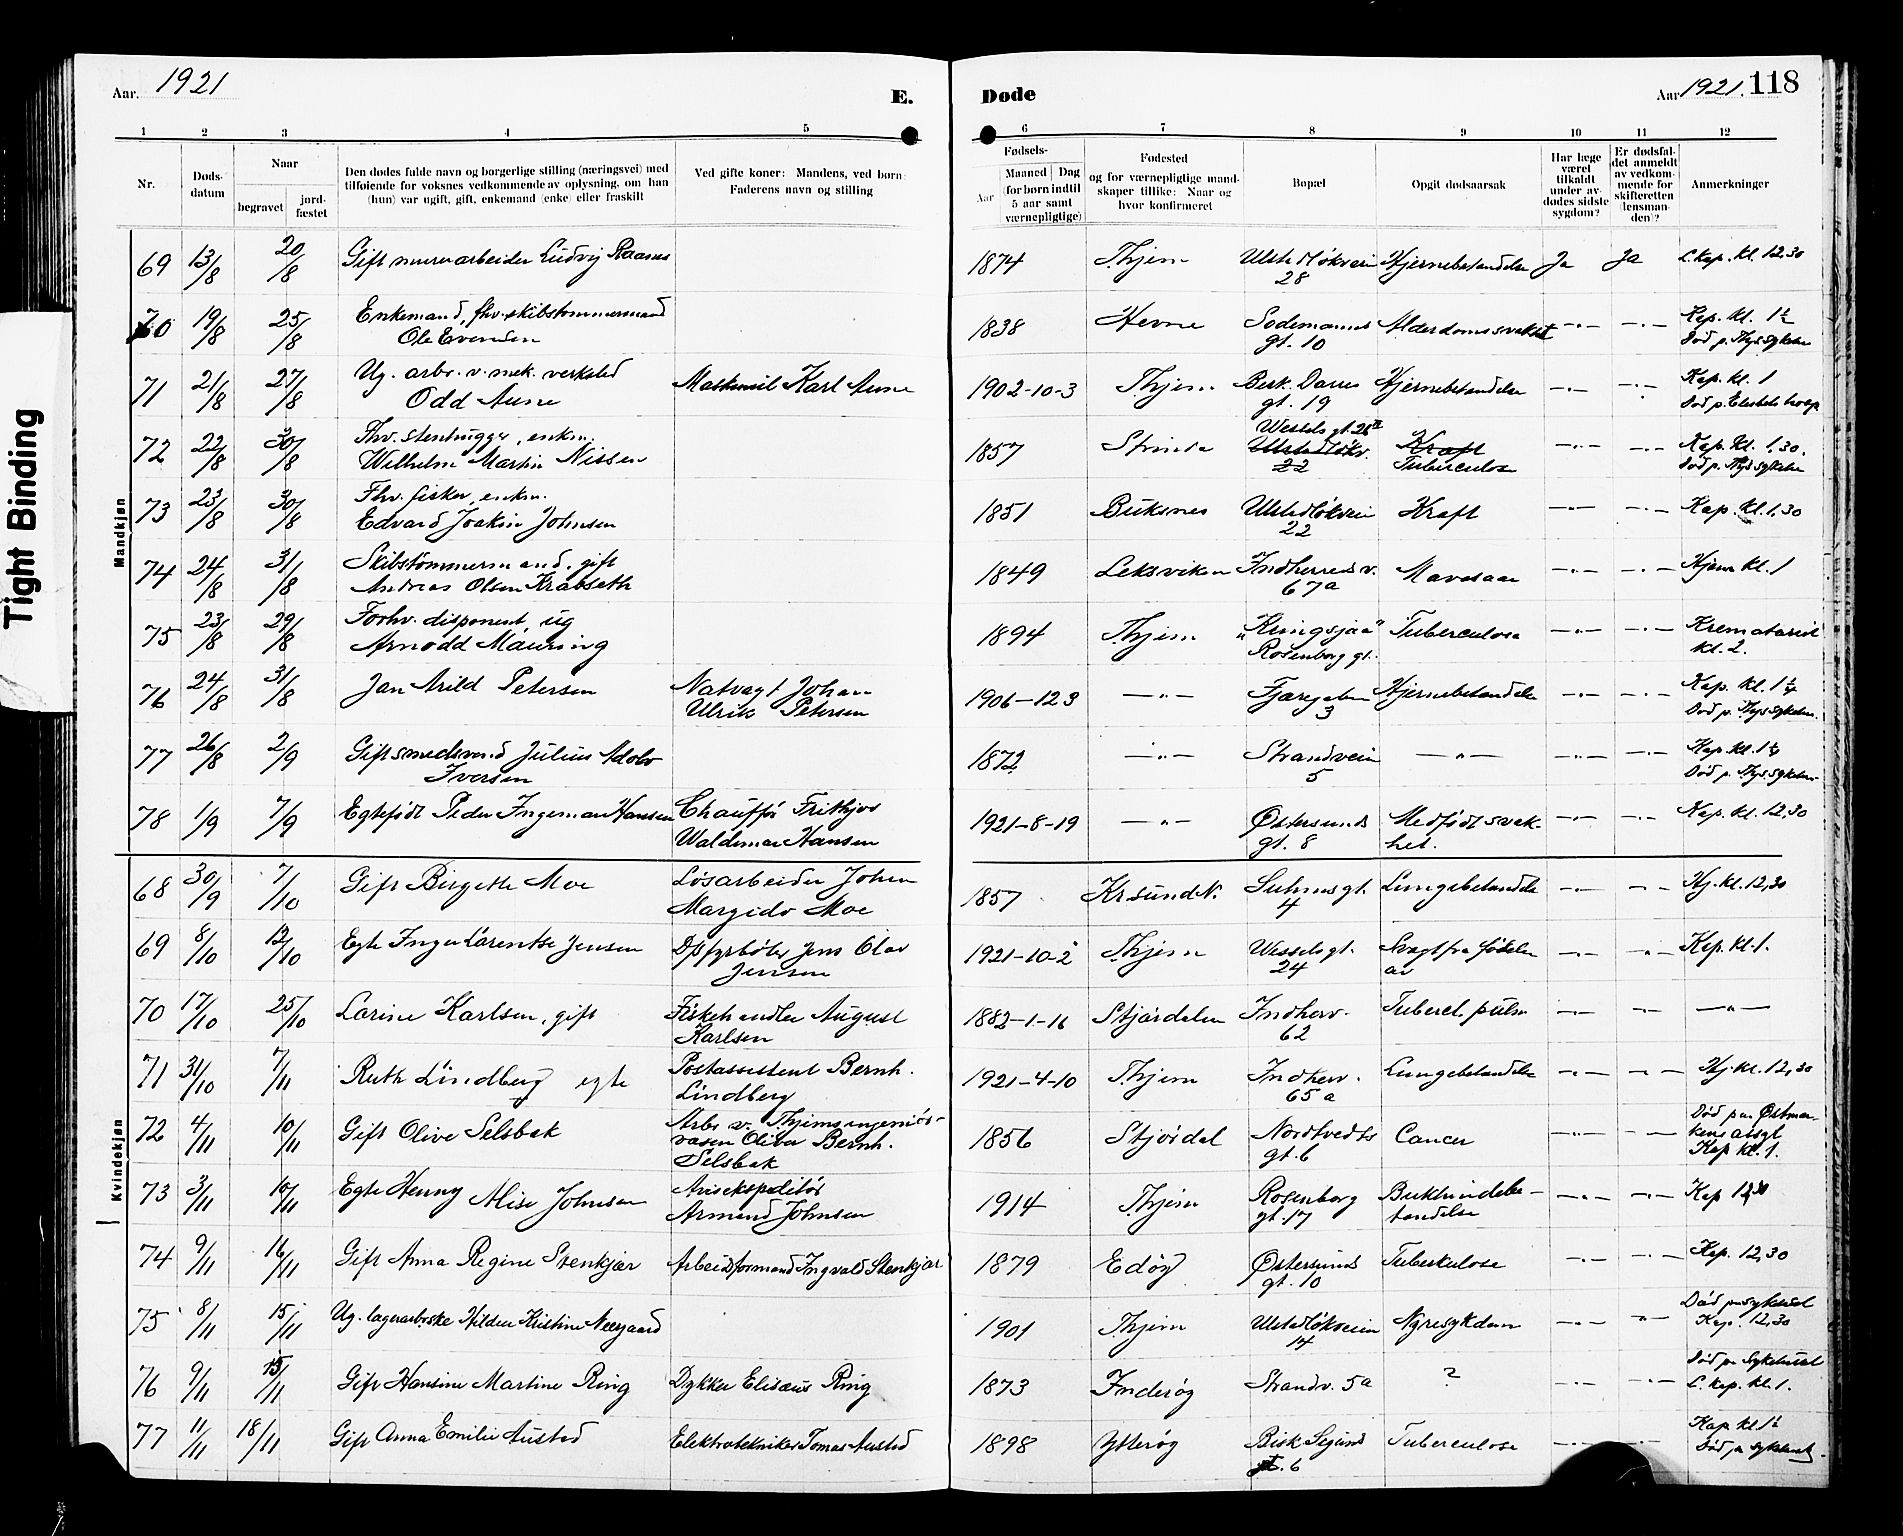 Aar. 1921
E.
Døde
Aar 1921. 118
1 2 3 4 5 6 7 8 9 10 11 12
Nr.
Døds-
datum
Naar
begravet
jord-
fæstet
Den dødes fulde navn og borgerlige stilling (næringsvei) med
tilføiende for voksnes vedkommende av oplysning, om han
(hun) var ugift, gift, enkemand (enke) eller fraskilt
Ved gifte koner: Mandens, ved børn:
Faderens navn og stilling
Fødsels-
Aar
Maaned Dag
(for børn indtil
5 aar samt
værnepligtige)
Fødested
og for værnepligtige mand-
skaper tillike: Naar og
hvor konfirmeret
Bopæl
Opgit dødsaarsak
Har læge
været
tilkaldt
under av-
dødes sidste
sygdom?
Er dødsfal-
det anmeldt
av vedkom-
mende for
skifteretten
(lensman-
den)?
Anmerkninger
Tight Binding
Mandkjøn
69 13/8 20/8 Gift murerarbeider Ludvig 1874 Thjem 28 Hjernebetændelse Ja Ja L. Kap. kl. 12,30
70 19/8 25/8 Enkemand, fhv. skibstømmermand
Ole Evensen 1838 Hevne Sodemanns
gt. 10 Alderdomssvakhet —"— —"— Kap. kl. 1½
Død p. Thjs sykehus
71 21/8 27/8 Ug. arb. v. mek. verksted
Odd Aune Karl Aune 1902-10-3 Thjem Bisk. Darres
gt. 19 Hjernebetændelse —"— —"— Kap. kl. 1
72 22/8 30/8 Fhv. stenhugger, enkm.
Wilhelm Martin Nissen 1857 Strinda Wessels gt. 26
22 Kraft
Tuberculose —"— —"— Kap. kl. 1,30.
Død p. Thjs sykehus
73 23/8 30/8 Fhv. fisker, enkm.
Edvard Joakim Johnsen 1851 Buksnes 22 Kraft —"— —"— Kap. kl. 1,30
74 24/8 31/8 Skibstømmermand, gift
Andreas Olsen Krabseth 1849 Leksviken Indherredsv.
67a Mavesaar —"— —"— Hjem kl. 1
75 23/8 29/8 Forhv. disponent, ug
Arnodd 1894 Thjem "Kringsjaa"
Rosenborg gt. Tuberculose —"— —"— Krematoriet
kl. 2.
76 24/8 31/8 Jan Arild Petersen Natvagt Johan
Ulrik Petersen 1906-12 3 —"— Fjæregaten
3 Hjernebetændelse —"— —"— Kap. kl. 1¼
Død p. Thjs sykehus.
77 26/8 2/9 Gift smedsvend Julius Adolv
Iversen 1872 —"— Strandveien
5 —"— —"— —"— Kap. kl. 1¼
Død p. Thjs. sykehus
78 1/9 7/9 Egtefødt Peder Ingeman Hansen Chauffør Frithjov
Waldemar Hansen 1921-8-19 —"— Østersunds
gt. 8 Medfødt svak-
het. —"— —"— Kap. kl. 12,30
Kvindekjøn
68 30/9 7/10 Gift Birgitte Moe Løsarbeider Johan
Margido Moe 1857 Krsund N. Suhmsgt.
4 Lungebetændelse —"— —"— Hj. kl. 12,30
69 8/10 12/10 Egte Inger Lorentse Jensen D/S fyrbøter Jens Olav
Jensen 1921-10-2 Thjem Wesselsgt.
24 Svagt fra fødselen
av —"— —"— Kap. kl. 1.
70 17/10 25/10 Larine Karlsen, gift Fiskehandler August
Karlsen 1882-1-16 Stjørdalen Indherv.
62 Tubercl. pulm —"— —"— —"—
71 31/10 7/11 Ruth Lindberg egte Postassistent Bernh.
Lindberg 1921-4-10 Thjem Indherv.
65 a Lungebetændelse —"— —"— Hj. kl. 12,30
72 4/11 10/11 Gift Olive Selsbak Arb. v. Thjems ingeniør-
væsen Oliver Bernh.
Selsbak 1856 Stjørdal Nordtvedts
gt. 6 Cancer —"— —"— Død paa Østmar-
kens asyl
Kap kl. 1.
73 3/11 10/11 Egte Henny Alise Johnsen Avisekspeditør
Armand Johnsen 1914 Thjem Rosenborg
gt. 17 Bukhindebe-
tændelse —"— —"— Kap 12,30
74 9/11 16/11 Gift Anna Regine Stenkjær Arbeidsformand Ingvald Stenkjær 1879 Edøy Østersunds
gt. 10 Tuberkulose —"— —"— Kap. 12,30
75 8/11 15/11 Ug. lagerarbeiderske Hildur Kristine Neergaard 1901 Thjem
14 Nyresykdom —"— —"— Død paa sykehuset
Kap. 12,30
76 9/11 15/11 Gift Hansine Martine Ring Dykker Elisæus Ring 1873 Inderøy Strandv. 5a ? —"— —"— Død paa Sykehuset
L. kap. kl. 1.
77 11/11 18/11 Gift Anna Emilie Austad Elektrotekniker Tomas Austad 1898 Ytterøy Bisk Sigurds
gt. 6 Tuberculose —"— Kap kl 1½
Død paa sykehuset